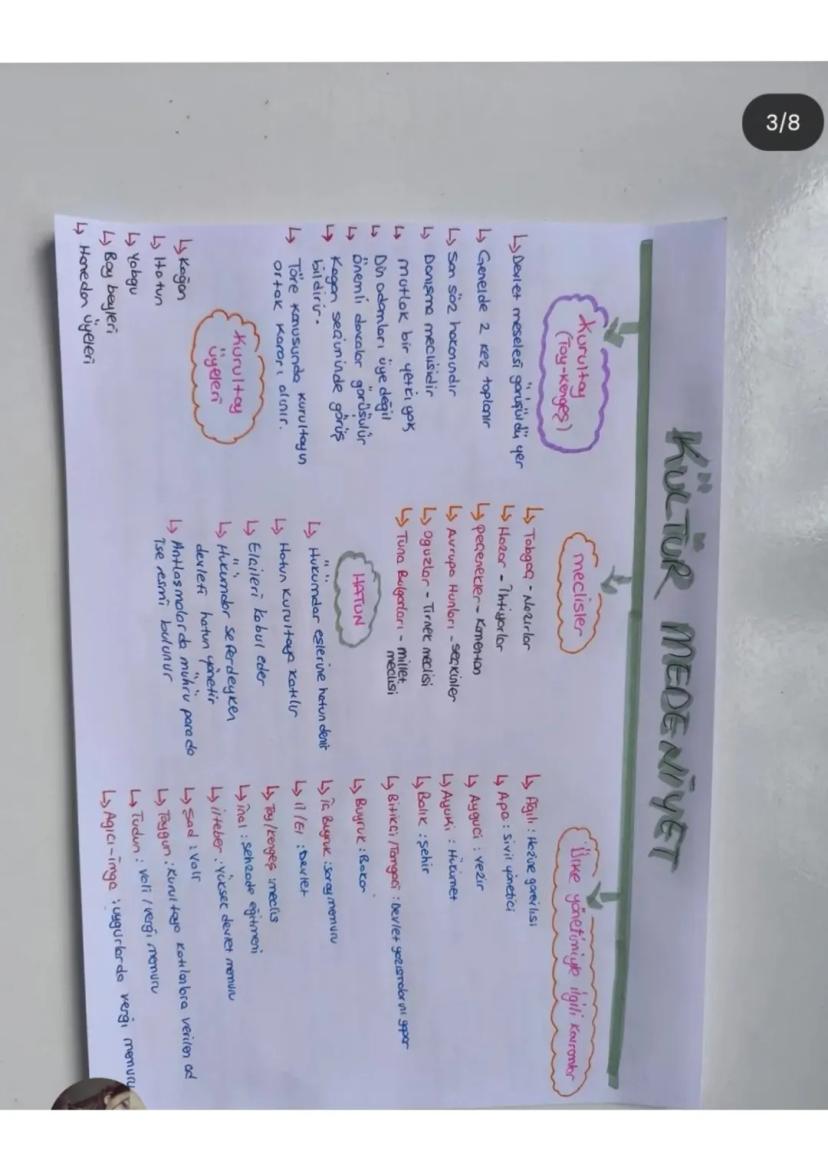 3/8
KÜLTÜR MEDENİYET
Kurultay
(Toy-Kengeş)
↳ Devlet meselesi görüşüldü yer
↳ Genelde 2 kez toplanır
↳ Son söz hakanındır
↳ Danışma meclisidir
↳ mutlak bir yetki yok
↳ Din adamları üye değil
↳ önemli davalar görüşülür
↳ Kagan seçiminde görüş
bildirir.
↳ Töre konusunda kurultayın
ortak kararı alınır.
Kurultay
üyeleri
↳ Kağan
↳ Hatun
↳ Yabgu
↳ Boy beyleri
↳ Hanedan üyeleri
meclisler
↳ Tabgaç - Nazırlar
↳ Hazar - İhtiyarlar
↳ Peçenekler - Komenton
↳ Avrupa Hunları - Seçkinler
↳ Oguzlar - Tirnek meclisi
↳ Tuna Bulgarları - millet
meclisi
HATUN
↳ Hükümdar eşlerine hatun denir
↳ Hatun kurultaya katılır
↳ Elçileri kabul eder
↳ Hükümdar seferdeyken
devleti hatun yönetir
↳ Antlaşmalarda mührü parada
ise resmi bulunur
Ülke yönetimiyle ilgili kavramlar
↳ Ağılı : Hazine görevlisi
↳ Apa : sivil yönetici
↳ Ayguci : vezir
↳ Ayuki : Hükümet
↳ Balık : şehir
↳ Bitikçi/Tamgacı : Devlet yazışmalarını yapar
↳ Buyruk : Bakan
↳ İç Buyruk : saray memuru
↳ il/El : Devlet
↳ Toy/kengeş : meclis
↳ İnal : şehzade eğitmeni
↳ ilteber : Yüksek devlet memuru
↳ Şad : Vali
↳ Toygun : Kurultaya katılanlara verilen ad
↳ Tudun : Vali / vergi memuru
↳ Agıcı-ınga : uygurlarda vergi memuru